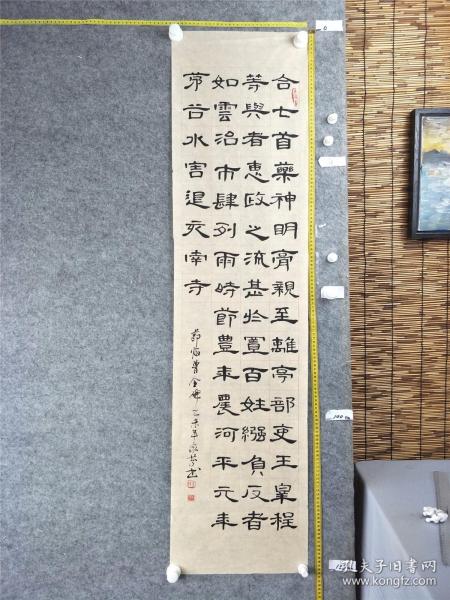 合七首藥神明膏親至離亭部吏王皐程
等與者惠政之流甚於置百姓繦負反者
如雲治市肆列雨時節豊年農河平元年
茅谷水害退亥南寺
節臨曹全碑 乙未年
孔夫子旧书网
www.kongfz.com